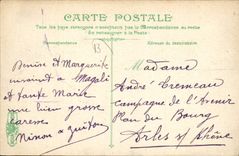 CARTE POSTALE
Tous les pays étrangers n'acceptent pas la Correspondance au recto
Se renseigner à la Poste
Correspondance
Adresse du destinataire
13
Denise et Marguerite
envoient à Magali
et tante Marie
une bien grosse
caresse
Ninon &
Madame
André
Campagne de l'Avenir
Plan du Bourg
Arles s/ Rhône